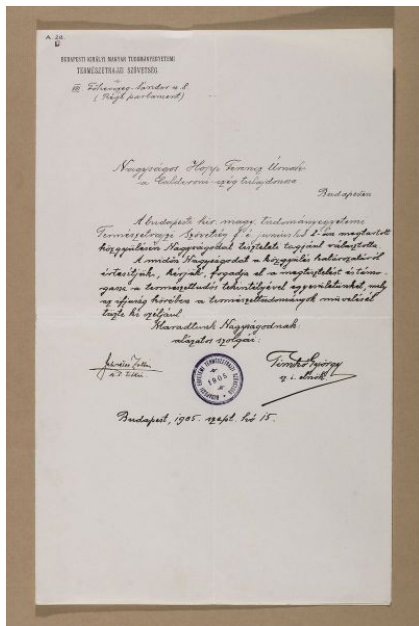 A. 24.
BUDAPESTI KIRÁLYI MAGYAR TUDOMÁNYEGYETEMI
TERMÉSZETRAJZI SZÖVETSÉG.
VIII. Főherczeg Sándor u. 8
(Régi parlament)
Nagyságos Hopp Ferencz Úrnak
a Calderoni czég tulajdonosa
Budapesten
A budapesti kir. magy. tudományegyetemi
Természetrajzi Szövetség f. é. junius hó 2-án megtartott
közgyűlésén Nagyságodat tiszteleti tagjául választotta.
A midőn Nagyságodat a közgyűlés határozatáról
értesítjük, kérjük, fogadja el a megtisztelést és támo-
gassa a természettudós tekintélyével egyesületünket, mely
az ifjuság körében a természettudományok művelését
tűzte ki czéljául.
Maradtunk Nagyságodnak
alázatos szolgái:
Zoltán
Timkó György
v. i. elnök
BUDAPESTI EGYETEMI TERMÉSZETRAJZI SZÖVETSÉG
1905
Budapest, 1905. szept. hó 15.